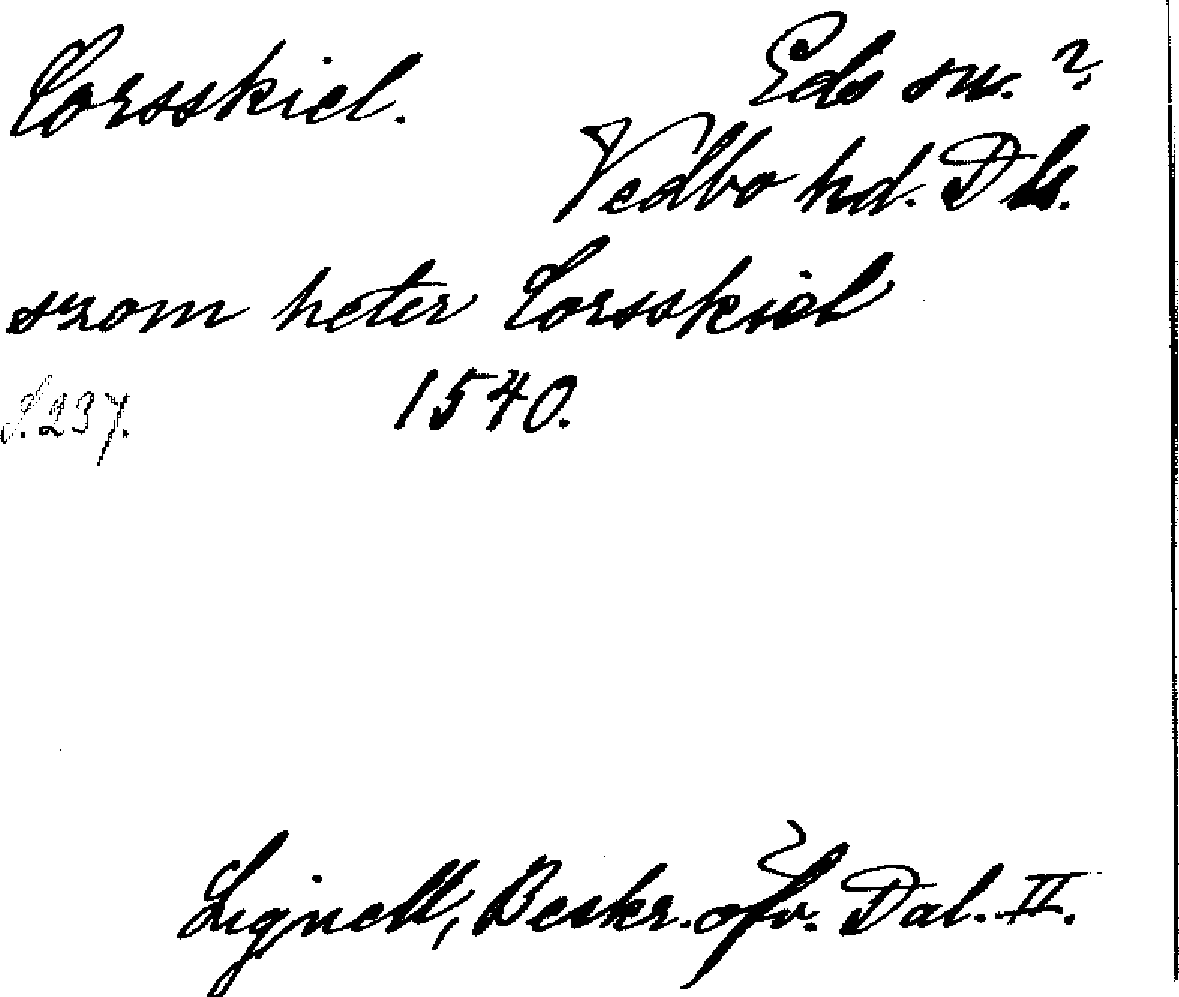 Corsskiel. Eds sn.?
Vedbo hd. Dls.
szom heter Corsskiel
S. 237. 1540.
Lignell, Beskr. öfv. Dal. II.